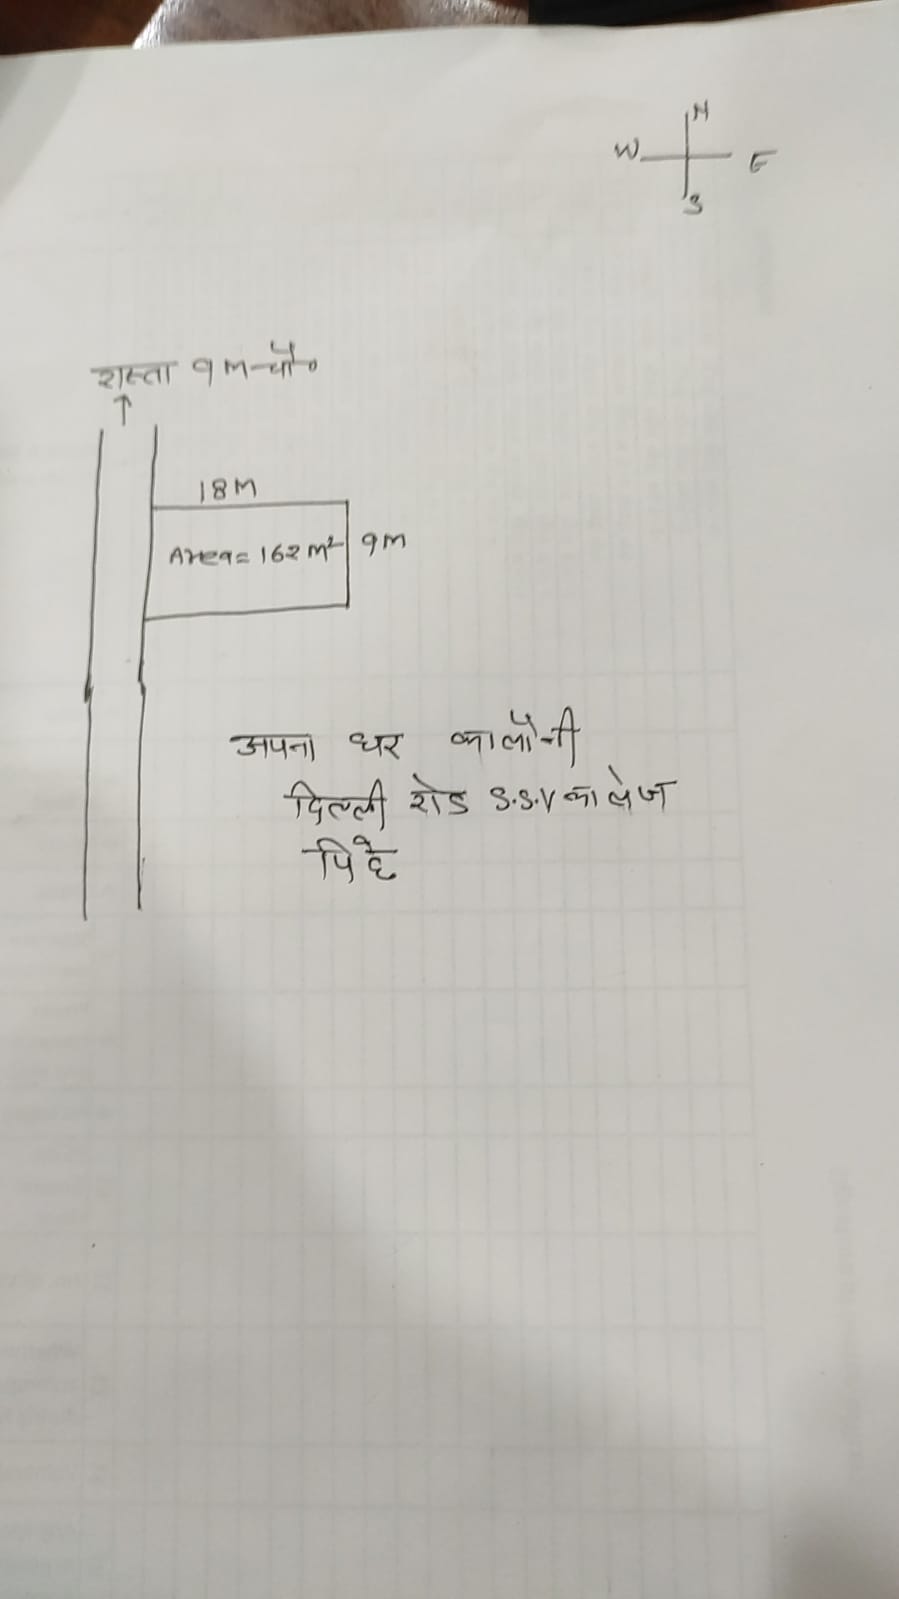 N
W E
S
रास्ता 9M चौ०
18M
Area = 162 m² 9M
अपना घर कालौनी
दिल्ली रोड S.S.V कालेज
पिछे